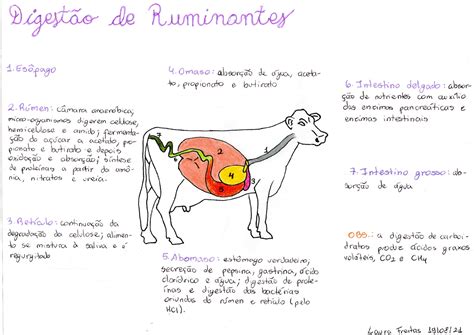 Digestão de Ruminantes
1. Esôfago
2. Rúmen: câmara anaeróbica,
micro-organismos digerem celulose,
hemicelulose e amido; fermenta-
ção do açúcar a acetato, pro-
pionato e butirato e depois
oxidação e absorção; síntese
de proteínas a partir da amô-
nia, nitratos e ureia.
3. Retículo: continuação da
degradação da celulose; alimen-
to se mistura à saliva e é
regurgitado
4. Omaso: absorção de água, aceta-
to, propionato e butirato
7
6
2
1
4
3
5
5. Abomaso: estômago verdadeiro;
secreção de pepsina, gastrina, ácido
clorídrico e água; digestão de prote-
ínas e digestão das bactérias
oriundas do rúmen e retículo (pelo
HCl).
6. Intestino delgado: absor-
ção de nutrientes com auxílio
das enzimas pancreáticas e
enzimas intestinais
7. Intestino grosso: ab-
sorção de água
OBS.: a digestão de carboi-
dratos produz ácidos graxos
voláteis, CO2 e CH4
Laura Freitas